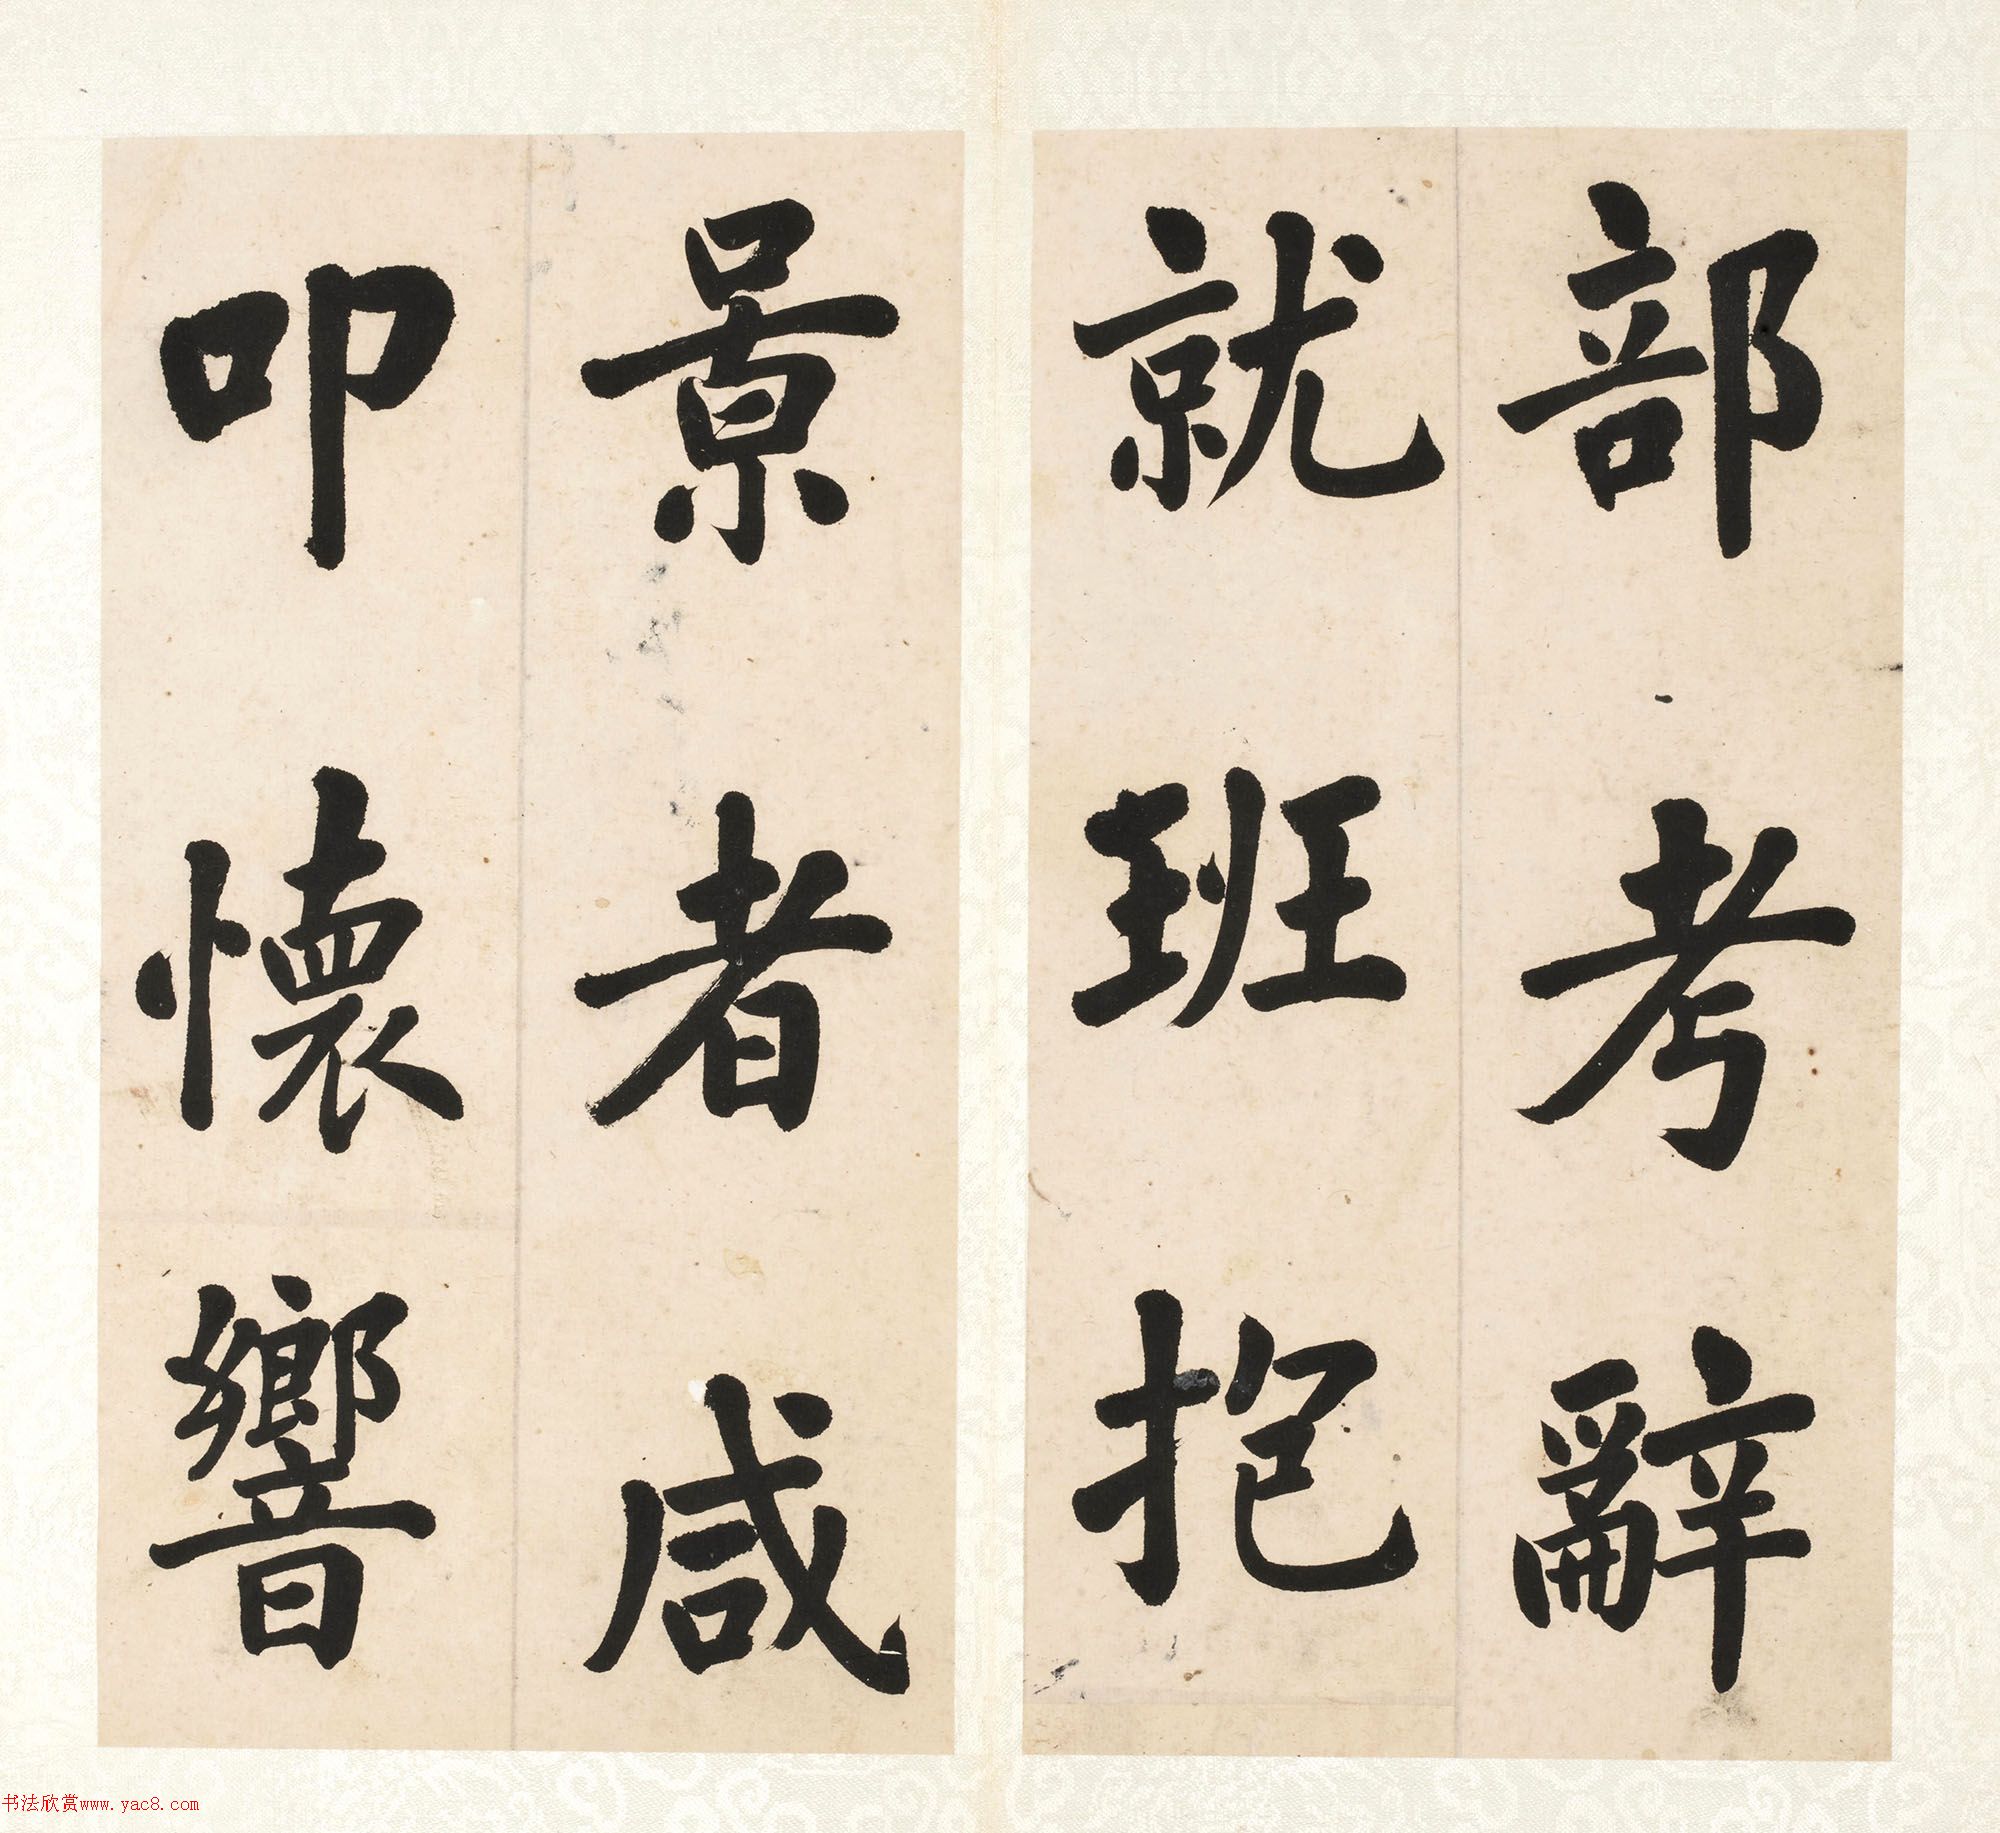 部考辭
就班抱
景者咸
叩懷響
书法欣赏www.yac8.com